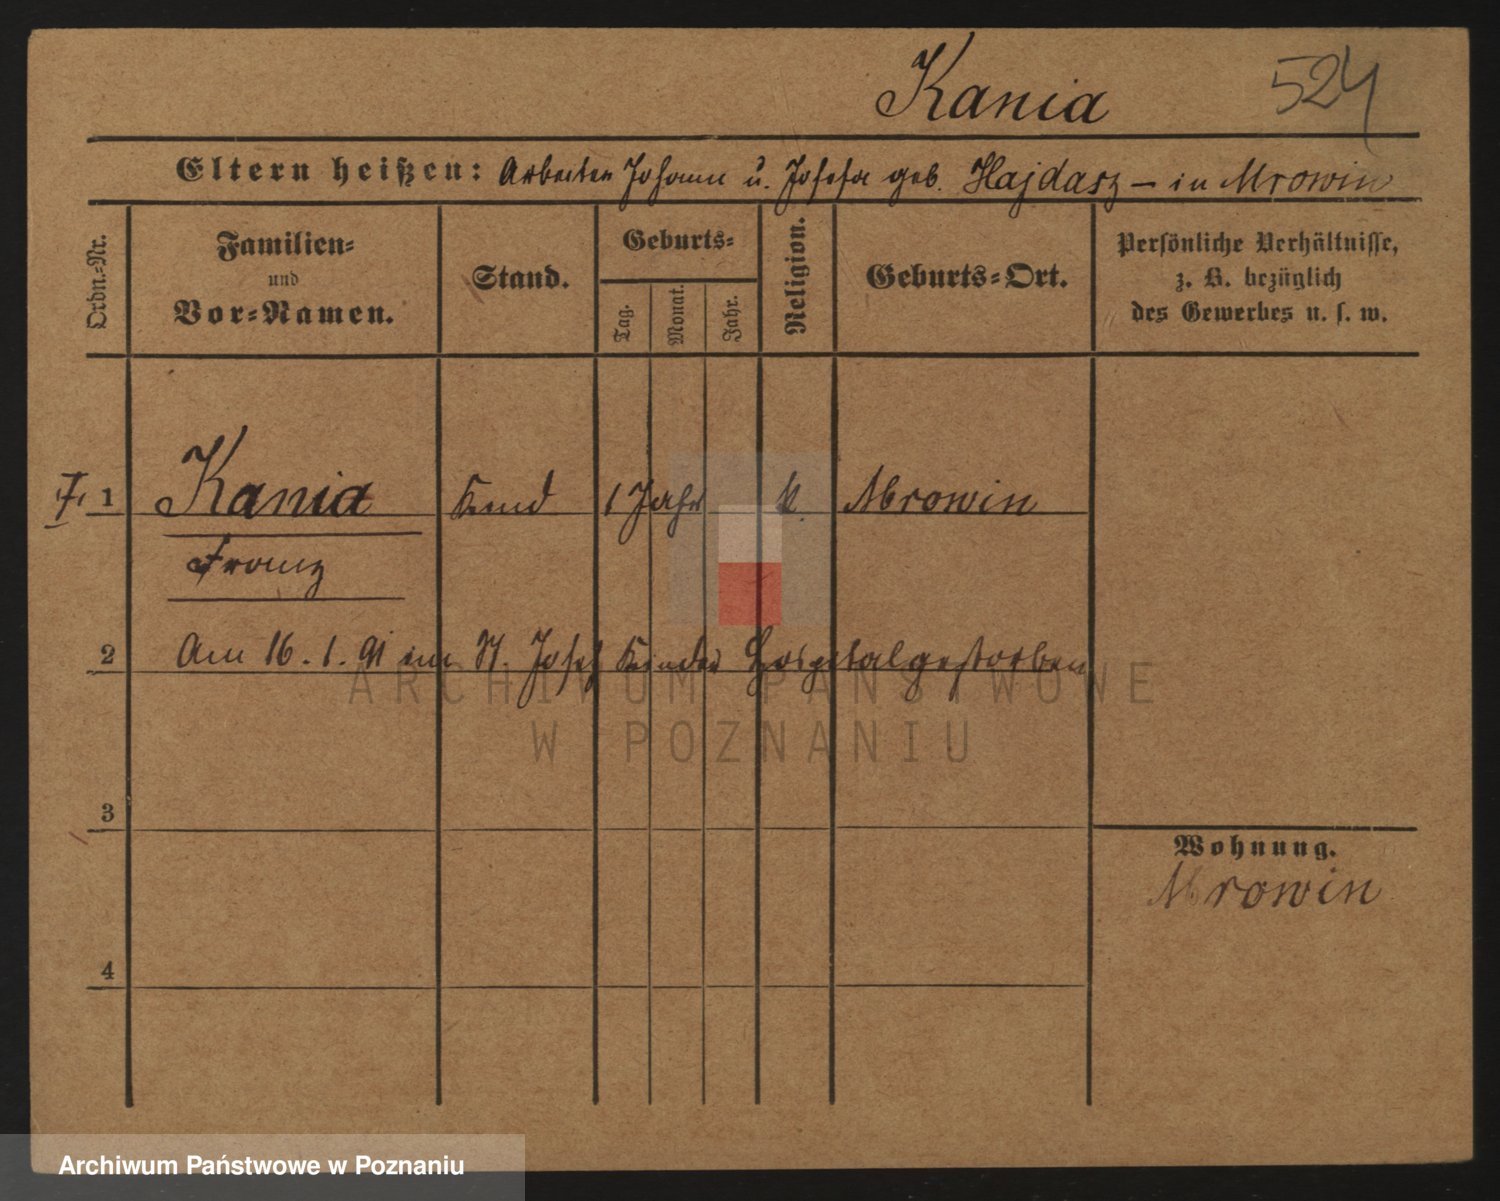 Kania 524
Eltern heißen: Arbeiter Johann u. Josefa geb. Hajdasz – in Mrowin
Ordn.=Nr.
Familien=
und
Vor=Namen.
Stand.
Geburts=
Tag.
Monat.
Jahr.
Religion.
Geburts=Ort.
Persönliche Verhältnisse,
z. B. bezüglich
des Gewerbes u. s. w.
1 Kania Kind 1 Jahr k. Mrowin
Franz
2 Am 16. 1. 91 im St. Josef Kinder Hospital gestorben
ARCHIWUM PAŃSTWOWE
W POZNANIU
3
Wohnung.
Mrowin
4
Archiwum Państwowe w Poznaniu